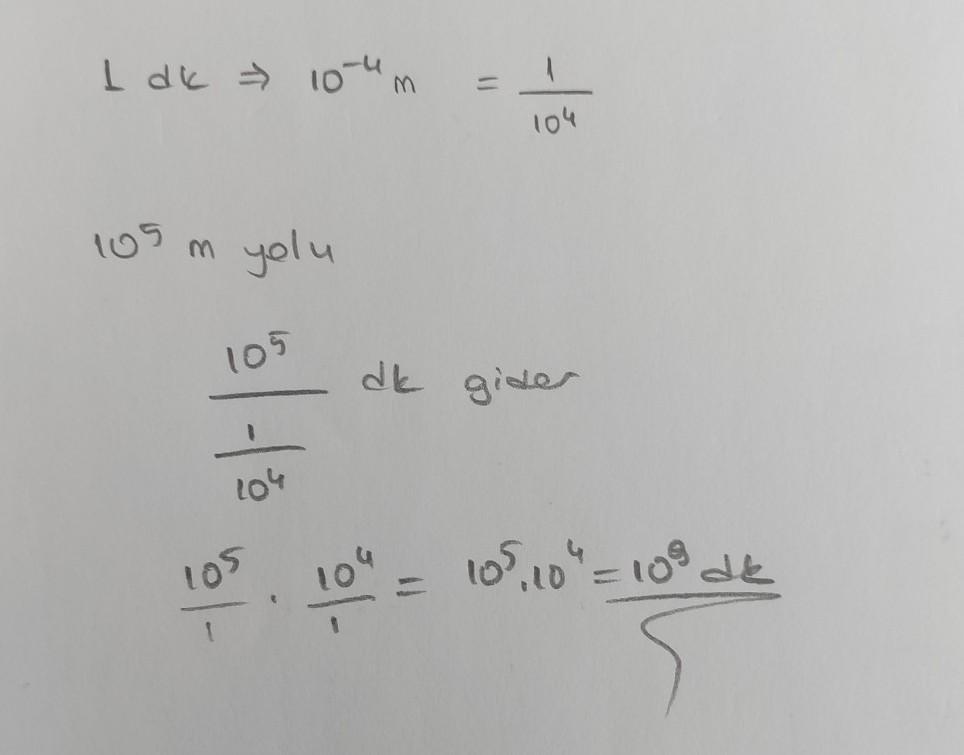 1 dk ⇒ 10⁻⁴ m = 1/10⁴
10⁵ m yolu
10⁵/(1/10⁴) dk gider
10⁵/1 . 10⁴/1 = 10⁵.10⁴ = 10⁹ dk